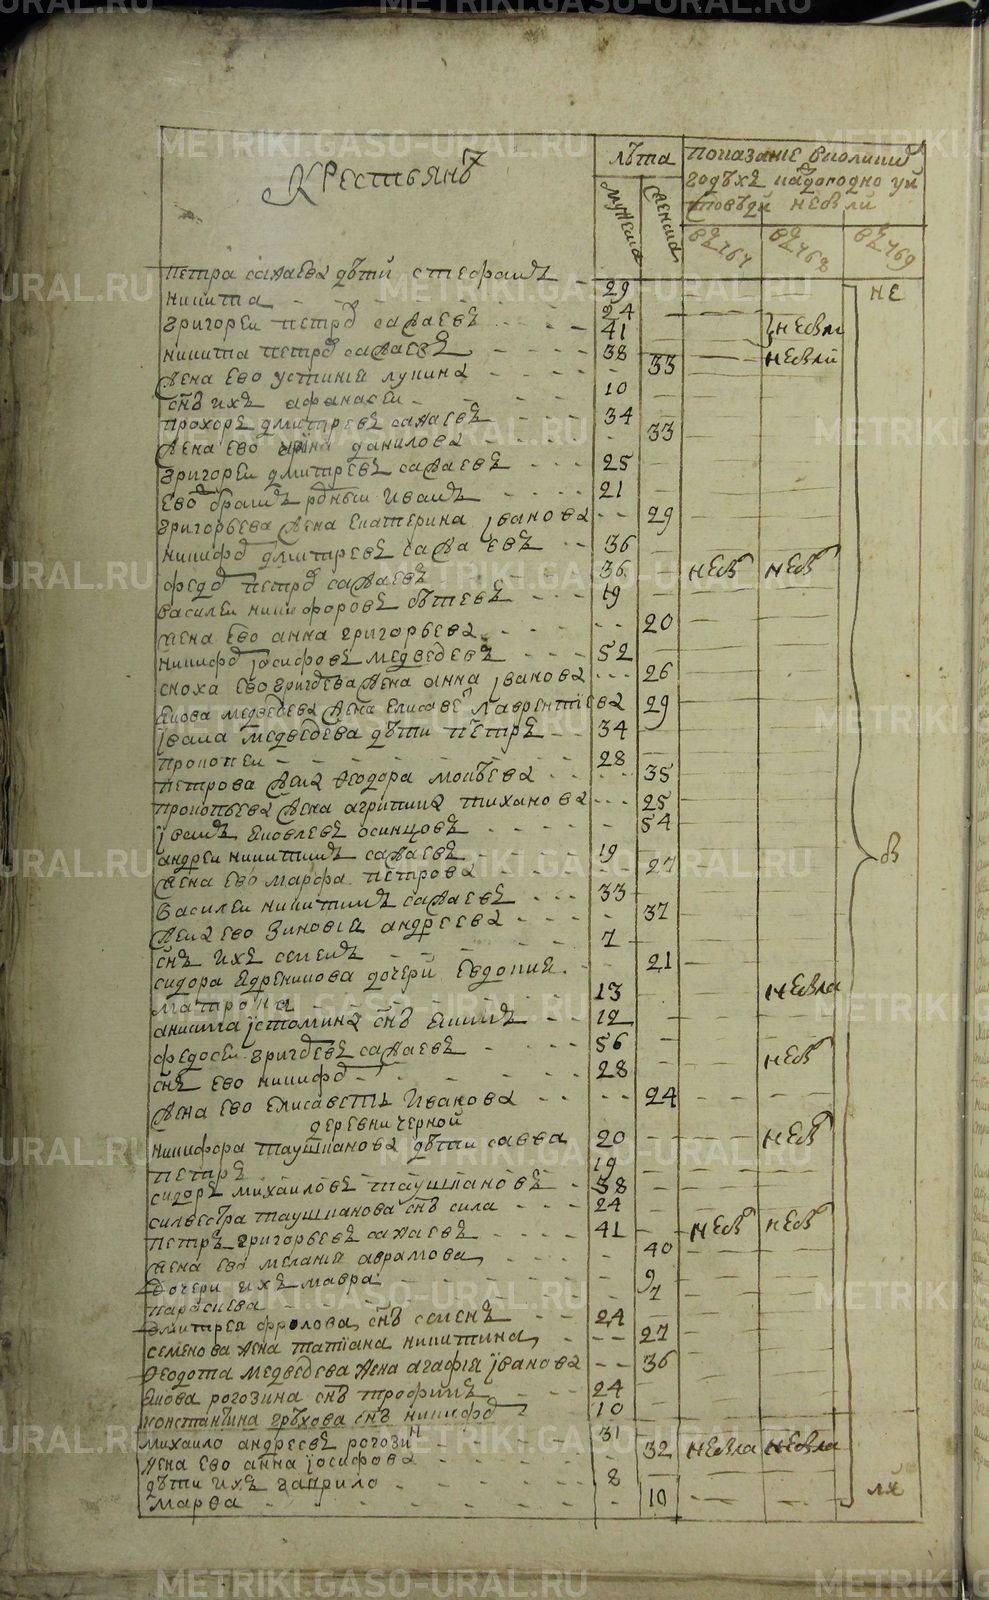 Крестьянъ
лѣта
мужеска
женска
показание в которыхъ
годѣхъ на
исповѣди небыли
767
768
769
петра сажаева дѣти стефанъ - 29
никита - 24
григореи петровъ сажаевъ - 41 небыли
никита петровъ сажаевъ - 38 небыли
жена ево устиния лукина - 33
снъ ихъ афанасеи - 10
прохоръ дмитревъ сажаевъ - 34
жена ево ирина данилова - 33
григореи дмитревъ сажаевъ - 25
ево братъ родныи иванъ - 21
григорьева жена екатерина иванова - 29
никифоръ дмитревъ сажаевъ - 36
федоръ петровъ сажаевъ - 36 небы небы
василеи никифоровъ - 19
жена ево анна григорьева - 20
никифоръ иосифовъ медведевъ - 52
сноха ево григорьева жена анна иванова - 26
якова медведева жена елисавеа лаврентиева 29
ивана медведева дѣти петръ - 34
прокопеи - 28
петрова жена феодора - 35
прокопьева жена агрипина тиханова - 25
иванъ яковлевъ осинцовъ - 54
андреи никитинъ сажаевъ - 19
жена ево марфа петрова - 27
василеи никитинъ сажаевъ - 33
жена ево зиновия андреева - 37
снъ ихъ семенъ - 7
сидора дочери евдокия - 21
матрона - 13 небыла
аникита устомина снъ - 12
федосеи григоревъ сажаевъ - 56 небы
снъ ево никифоръ - 28
жена ево елисаветъ иванова - 24
деревни черной
никифора таушканова дѣти савва 20 небы
петръ 19
сидоръ михаиловъ таушкановъ - 38
силвестра таушканова снъ сила - 24
петръ григорьевъ сажаевъ - 41 небы небы
жена ево мелания аврамова - 40
дочери ихъ мавра - 9
параскева - 7
дмитрея фролова снъ семенъ - 24
семенова жена татиана никитина - 27
феодота медведева жена агафия иванова - 36
якова рогозина снъ трофимъ - 24
констанътина грѣхова снъ никифоръ 10
михаило андреевъ рогозинъ - 31
жена ево анна иосифова - 32 небыла небыла
дѣти ихъ гаврило - 8
марва - 10
не
б
ли